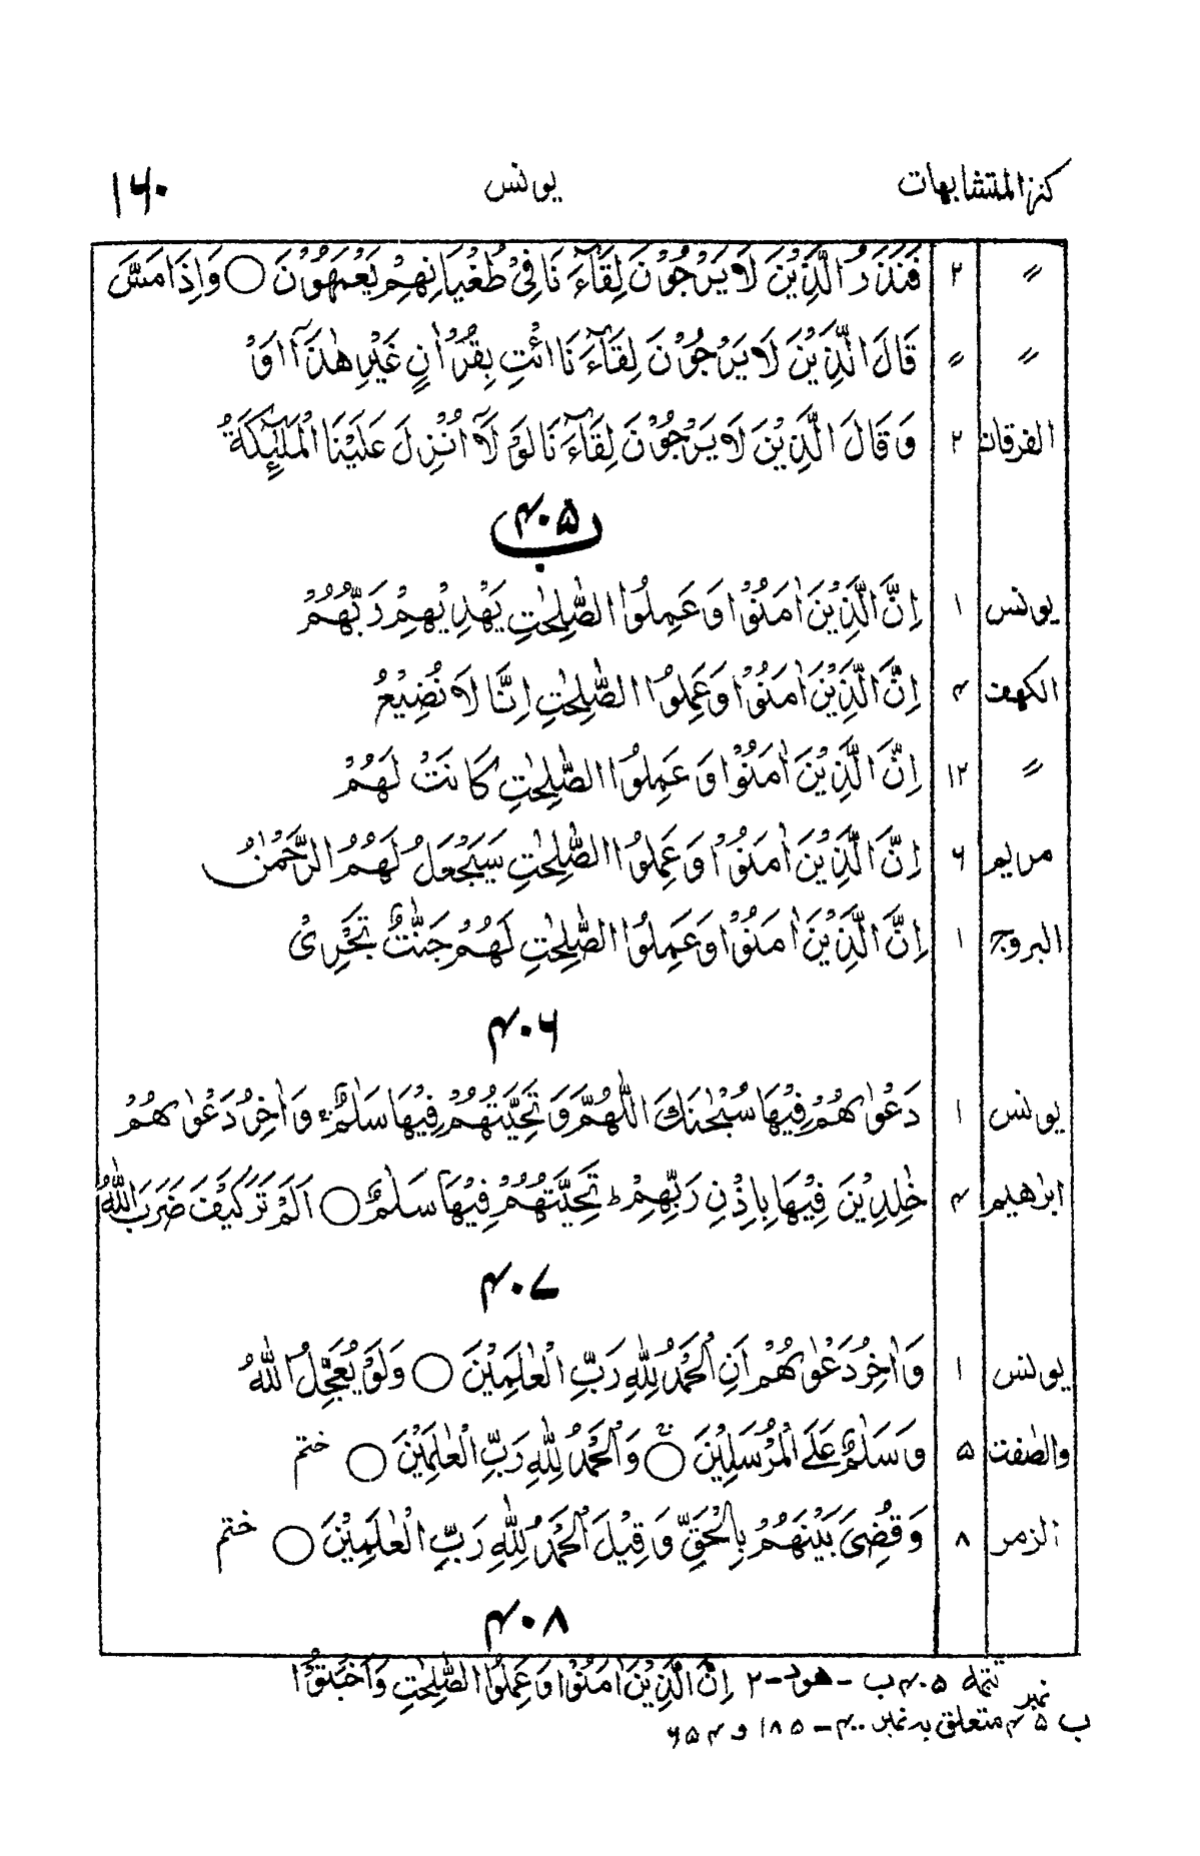 كنز المتشابهات يونس ۱۶۰
〃 ۲ فَنَذَرُ الَّذِيْنَ لَا يَرْجُوْنَ لِقَآءَنَا فِيْ طُغْيَانِهِمْ يَعْمَهُوْنَ ○ وَاِذَا مَسَّ
〃 〃 قَالَ الَّذِيْنَ لَا يَرْجُوْنَ لِقَآءَنَا ائْتِ بِقُرْاٰنٍ غَيْرِ هٰذَآ اَوْ
الفرقان ۲ وَقَالَ الَّذِيْنَ لَا يَرْجُوْنَ لِقَآءَنَا لَوْ لَآ اُنْزِلَ عَلَيْنَا الْمَلٰٓئِكَةُ
۴۰۵ ب
يونس ۱ اِنَّ الَّذِيْنَ اٰمَنُوْا وَعَمِلُوا الصّٰلِحٰتِ يَهْدِيْهِمْ رَبُّهُمْ
الكهف ۴ اِنَّ الَّذِيْنَ اٰمَنُوْا وَعَمِلُوا الصّٰلِحٰتِ اِنَّا لَا نُضِيْعُ
〃 ۱۲ اِنَّ الَّذِيْنَ اٰمَنُوْا وَعَمِلُوا الصّٰلِحٰتِ كَانَتْ لَهُمْ
مريم ۶ اِنَّ الَّذِيْنَ اٰمَنُوْا وَعَمِلُوا الصّٰلِحٰتِ سَيَجْعَلُ لَهُمُ الرَّحْمٰنُ
البروج ۱ اِنَّ الَّذِيْنَ اٰمَنُوْا وَعَمِلُوا الصّٰلِحٰتِ لَهُمْ جَنّٰتٌ تَجْرِىْ
۴۰۶
يونس ۱ دَعْوٰىهُمْ فِيْهَا سُبْحٰنَكَ اللّٰهُمَّ وَتَحِيَّتُهُمْ فِيْهَا سَلٰمٌ ۚ وَاٰخِرُ دَعْوٰىهُمْ
ابراهيم ۴ خٰلِدِيْنَ فِيْهَا بِاِذْنِ رَبِّهِمْ ؕ تَحِيَّتُهُمْ فِيْهَا سَلٰمٌ ○ اَلَمْ تَرَ كَيْفَ ضَرَبَ اللّٰهُ
۴۰۷
يونس ۱ وَاٰخِرُ دَعْوٰىهُمْ اَنِ الْحَمْدُ لِلّٰهِ رَبِّ الْعٰلَمِيْنَ ○ وَلَوْ يُعَجِّلُ اللّٰهُ
والصّٰفت ۵ وَسَلٰمٌ عَلَى الْمُرْسَلِيْنَ ○ وَالْحَمْدُ لِلّٰهِ رَبِّ الْعٰلَمِيْنَ ○ ختم
الزمر ۸ وَقُضِىَ بَيْنَهُمْ بِالْحَقِّ وَقِيْلَ الْحَمْدُ لِلّٰهِ رَبِّ الْعٰلَمِيْنَ ○ ختم
۴۰۸
تتمه ۴۰۵ ب - هود - ۲ اِنَّ الَّذِيْنَ اٰمَنُوْا وَعَمِلُوا الصّٰلِحٰتِ وَاَخْبَتُوْٓا
نمبر ۴۵ ب متعلق به نمبر ۴۰۰ - ۱۸۵ و ۴۵۶